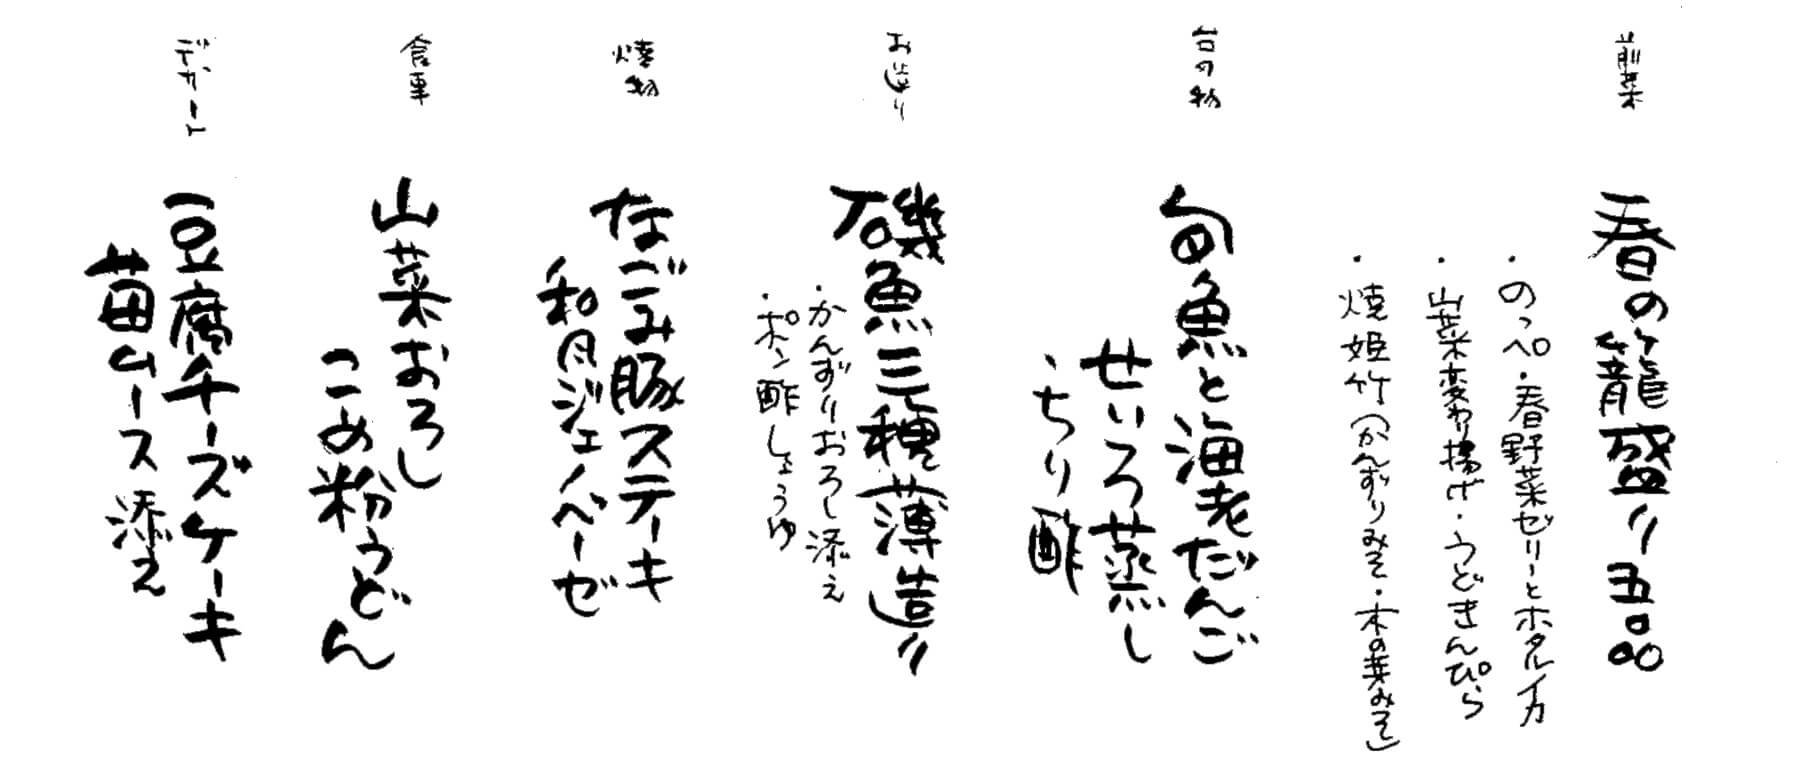 前菜
春の籠盛り五品
・のっぺ・春野菜ゼリーとホタルイカ
・山菜変わり揚げ・うどきんぴら
・焼姫竹(かんずりみそ・木の芽みそ)
台の物
旬魚と海老だんご
せいろ蒸し
・ちり酢
お造り
磯魚三種薄造り
・かんずりおろし添え
・ポン酢しょうゆ
焼物
なごみ豚ステーキ
和風ジェノベーゼ
食事
山菜おろし
こめ粉うどん
デザート
豆腐チーズケーキ
苗ムース添え